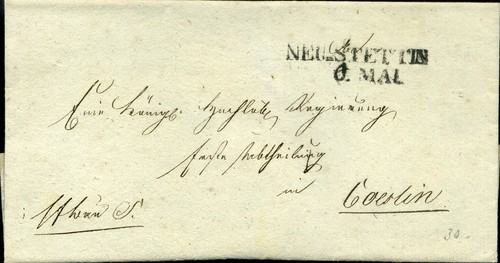 NEU-STETTIN
6. MAI
Eine Königl. Hochlöbl. Regierung
Erste Abtheilung
in
Coeslin
30.-